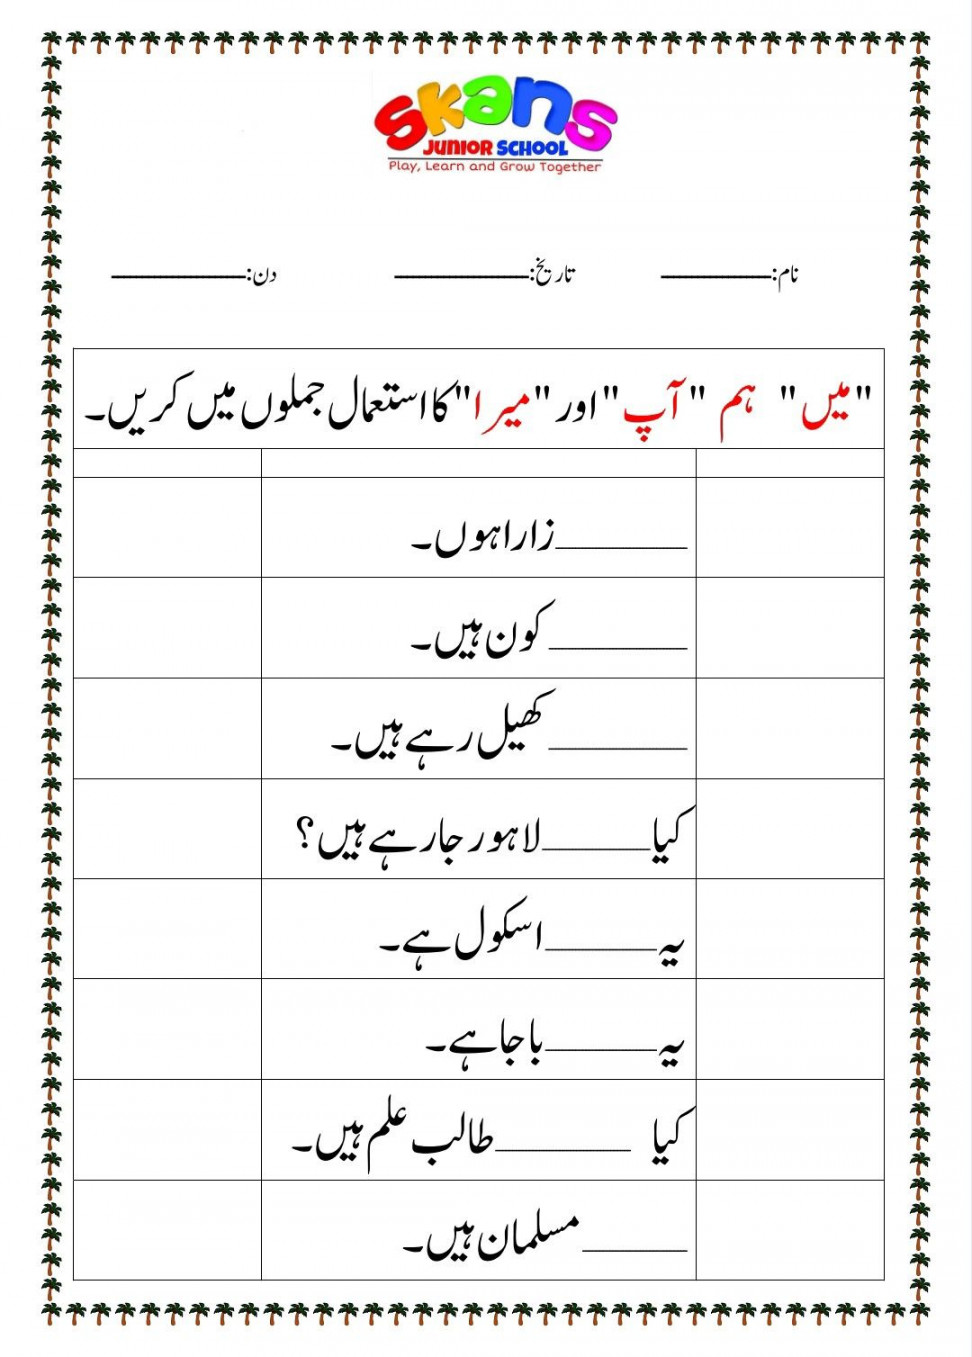 skans
JUNIOR SCHOOL
Play, Learn and Grow Together
نام:__________ تاریخ:__________ دن:__________
"میں" ہم "آپ" اور "میرا" کا استعمال جملوں میں کریں۔
__________زارا ہوں۔
__________ کون ہیں۔
__________ کھیل رہے ہیں۔
کیا__________لاہور جا رہے ہیں؟
یہ__________اسکول ہے۔
یہ__________باجا ہے۔
کیا __________طالب علم ہیں۔
__________ مسلمان ہیں۔